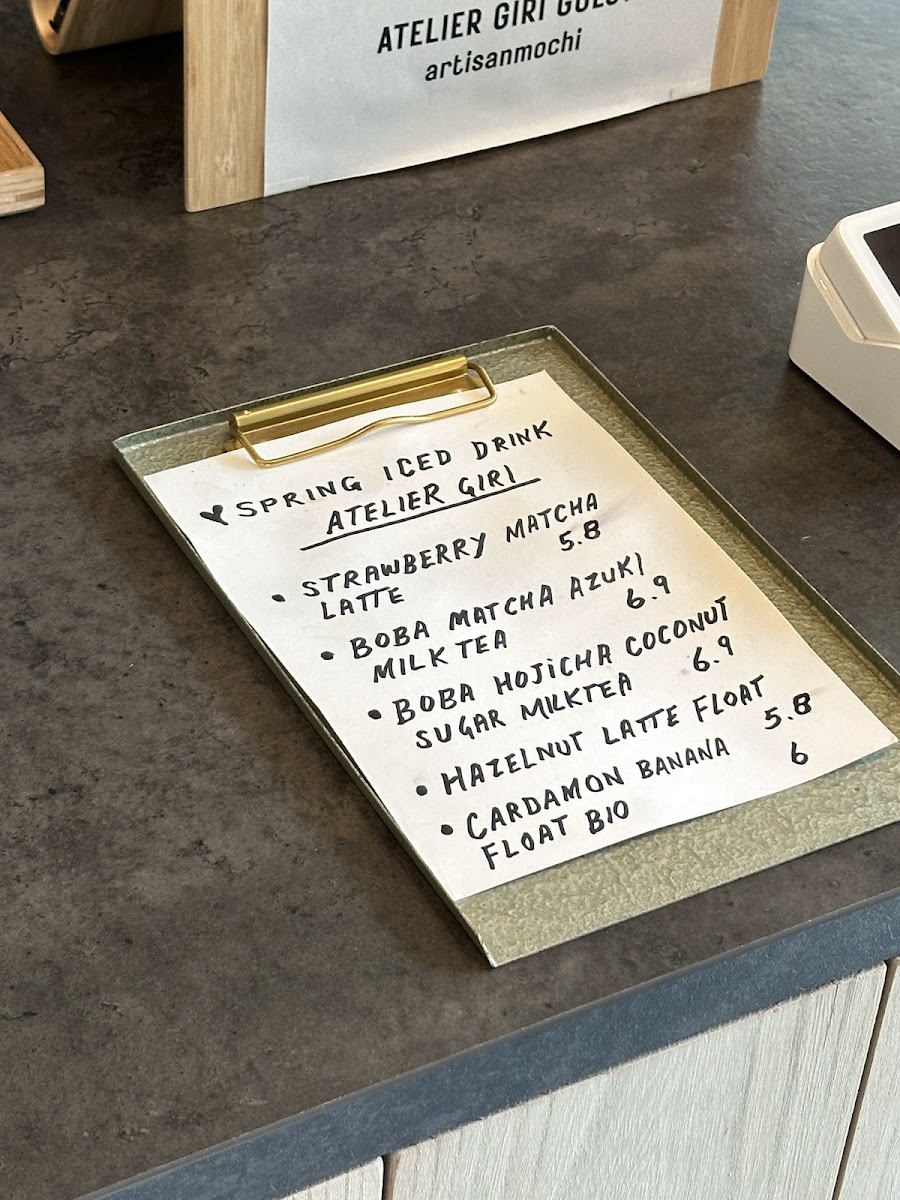 ATELIER GIRI
artisanmochi
♥ SPRING ICED DRINK
ATELIER GIRI
• STRAWBERRY MATCHA
LATTE 5.8
• BOBA MATCHA AZUKI
MILK TEA 6.9
• BOBA HOJICHA COCONUT
SUGAR MILKTEA 6.9
• HAZELNUT LATTE FLOAT
5.8
• CARDAMON BANANA 6
FLOAT BIO